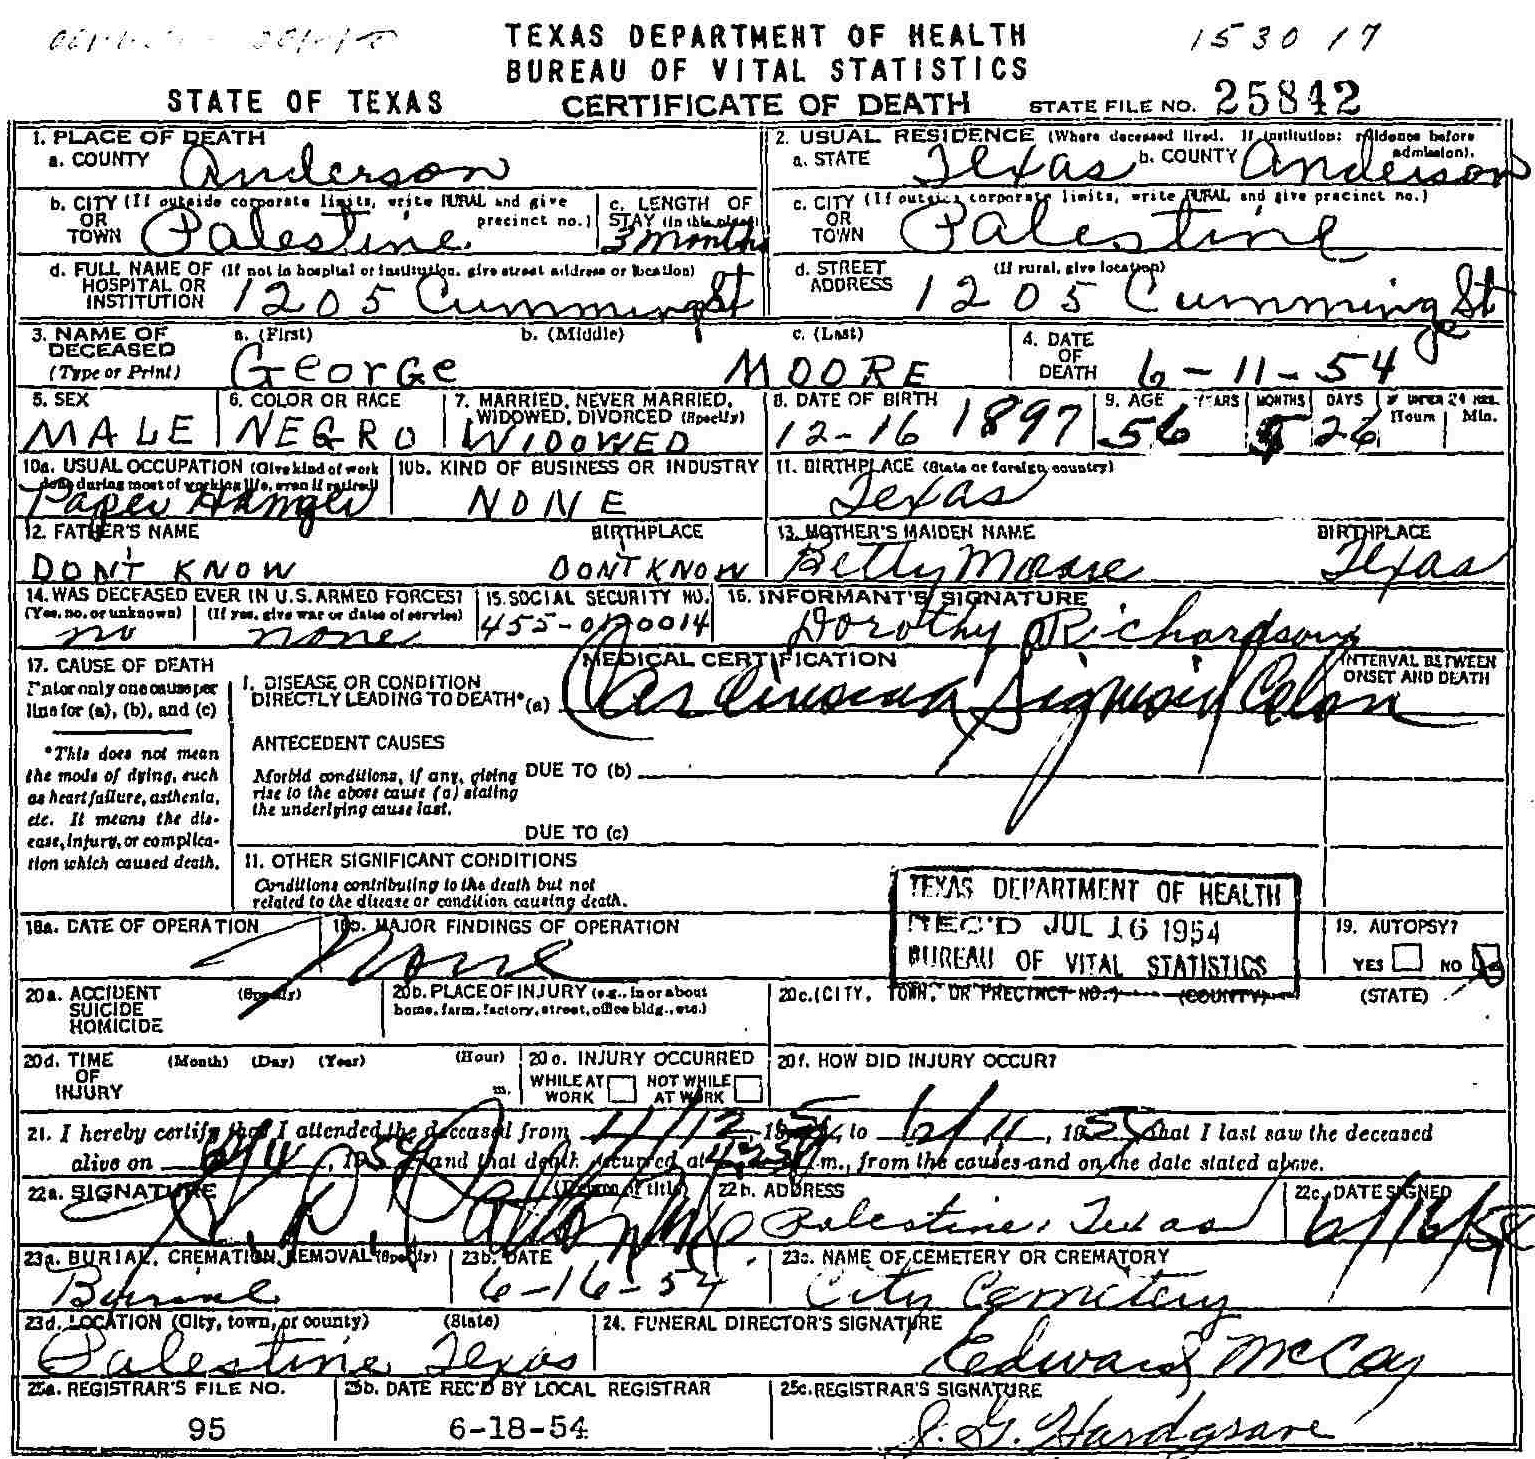 TEXAS DEPARTMENT OF HEALTH
1530 17
BUREAU OF VITAL STATISTICS
STATE OF TEXAS CERTIFICATE OF DEATH STATE FILE NO. 25842
1. PLACE OF DEATH
a. COUNTY Anderson
2. USUAL RESIDENCE (Where deceased lived. If institution: residence before admission).
a. STATE Texas b. COUNTY Anderson
b. CITY (If outside corporate limits, write RURAL and give precinct no.) OR TOWN Palestine
c. LENGTH OF STAY (in this place) 3 months
c. CITY (If outside corporate limits, write RURAL and give precinct no.) OR TOWN Palestine
d. FULL NAME OF (If not in hospital or institution, give street address or location) HOSPITAL OR INSTITUTION 1205 Cummings St
d. STREET ADDRESS (If rural, give location) 1205 Cummings St
3. NAME OF DECEASED (Type or Print) a. (First) George b. (Middle) c. (Last) MOORE
4. DATE OF DEATH 6-11-54
5. SEX MALE
6. COLOR OR RACE NEGRO
7. MARRIED, NEVER MARRIED, WIDOWED, DIVORCED (Specify) WIDOWED
8. DATE OF BIRTH 12-16 1897
9. AGE YEARS 56 MONTHS 5 DAYS 26 IF UNDER 24 HRS. Hours Min.
10a. USUAL OCCUPATION (Give kind of work done during most of working life, even if retired) Paper Hanger
10b. KIND OF BUSINESS OR INDUSTRY NONE
11. BIRTHPLACE (State or foreign country) Texas
12. FATHER'S NAME DON'T KNOW BIRTHPLACE DON'T KNOW
13. MOTHER'S MAIDEN NAME Betty Moore BIRTHPLACE Texas
14. WAS DECEASED EVER IN U.S. ARMED FORCES? (Yes, no, or unknown) no (If yes, give war or dates of service) none
15. SOCIAL SECURITY NO. 455-01-0014
16. INFORMANT'S SIGNATURE Dorothy Richardson
17. CAUSE OF DEATH
Enter only one cause per
line for (a), (b), and (c)
*This does not mean
the mode of dying, such
as heart failure, asthenia,
etc. It means the dis-
ease, injury, or complica-
tion which caused death.
MEDICAL CERTIFICATION
INTERVAL BETWEEN ONSET AND DEATH
I. DISEASE OR CONDITION
DIRECTLY LEADING TO DEATH* (a) Carcinoma Sigmoid Colon
ANTECEDENT CAUSES
Morbid conditions, if any, giving
rise to the above cause (a) stating
the underlying cause last.
DUE TO (b)
DUE TO (c)
11. OTHER SIGNIFICANT CONDITIONS
Conditions contributing to the death but not
related to the disease or condition causing death.
TEXAS DEPARTMENT OF HEALTH
REC'D JUL 16 1954
BUREAU OF VITAL STATISTICS
18a. DATE OF OPERATION
18b. MAJOR FINDINGS OF OPERATION
None
19. AUTOPSY?
YES NO
20a. ACCIDENT SUICIDE HOMICIDE (Specify)
20b. PLACE OF INJURY (e.g., in or about home, farm, factory, street, office bldg., etc.)
20c. (CITY, TOWN, OR PRECINCT NO.) (COUNTY) (STATE)
20d. TIME OF INJURY (Month) (Day) (Year) (Hour) m.
20e. INJURY OCCURRED
WHILE AT WORK NOT WHILE AT WORK
20f. HOW DID INJURY OCCUR?
21. I hereby certify that I attended the deceased from 4/12, 1954, to 6/11, 1954, that I last saw the deceased
alive on , 1954 and that death occurred at m., from the causes and on the date stated above.
22a. SIGNATURE (Degree or title)
22b. ADDRESS Palestine, Texas
22c. DATE SIGNED 6/16/54
23a. BURIAL, CREMATION, REMOVAL (Specify) Burial
23b. DATE 6-16-54
23c. NAME OF CEMETERY OR CREMATORY City Cemetery
23d. LOCATION (City, town, or county) (State) Palestine Texas
24. FUNERAL DIRECTOR'S SIGNATURE Edward McCoy
25a. REGISTRAR'S FILE NO. 95
25b. DATE REC'D BY LOCAL REGISTRAR 6-18-54
25c. REGISTRAR'S SIGNATURE J. G. Hardgrave